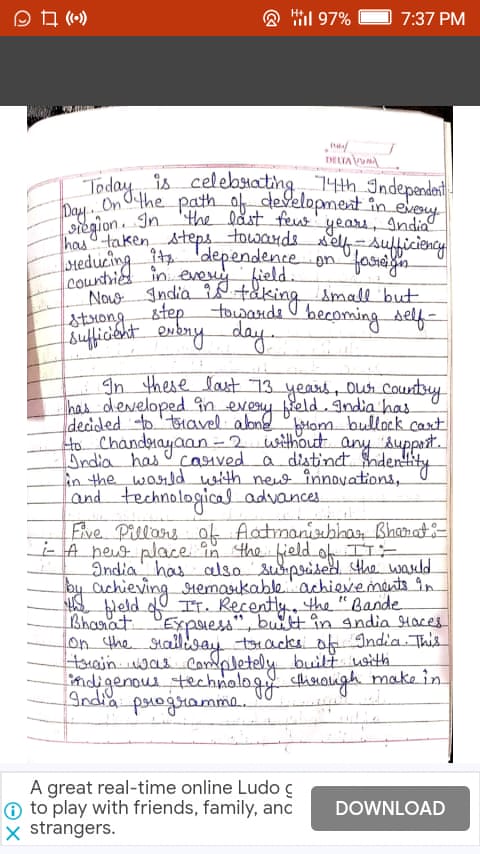 97%
7:37 PM
DELTA
Today is celebrating 74th Independent
Day. On the path of development in every
region. In the last few years, India
has taken steps towards self-sufficiency
reducing its dependence on foreign
countries in every field.
Now India is taking small but
strong step towards becoming self-
sufficient every day.
In these last 73 years, our country
has developed in every field. India has
decided to travel alone from bullock cart
to Chandrayaan-2 without any support.
India has carved a distinct indentity
in the world with new innovations,
and technological advances
Five Pillars of Aatmanirbhar Bharat:-
i- A new place in the field of IT:-
India has also surprised the would
by achieving remarkable achievements in
the field of IT. Recently, the "Bande
Bharat Express", built in India races
on the railway tracks of India. This
train was completely built with
indigenous technology through make in
India programme.
A great real-time online Ludo g
to play with friends, family, and
strangers.
DOWNLOAD